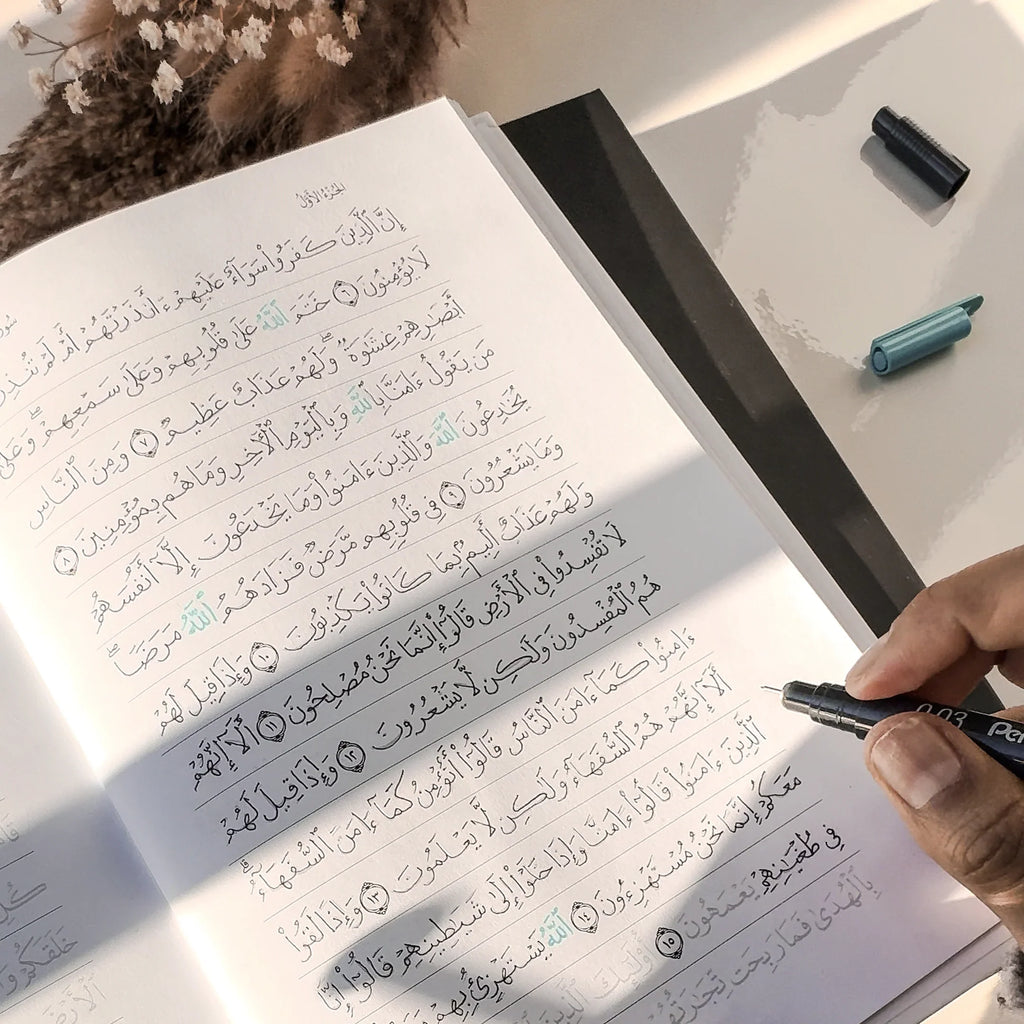 الجزء الأول
إِنَّ ٱلَّذِينَ كَفَرُوا۟ سَوَآءٌ عَلَيْهِمْ ءَأَنذَرْتَهُمْ أَمْ لَمْ تُنذِرْ
لَا يُؤْمِنُونَ ٦ خَتَمَ ٱللَّهُ عَلَىٰ قُلُوبِهِمْ وَعَلَىٰ سَمْعِهِمْ ۖ وَعَلَىٰٓ
أَبْصَـٰرِهِمْ غِشَـٰوَةٌ ۖ وَلَهُمْ عَذَابٌ عَظِيمٌ ٧ وَمِنَ ٱلنَّاسِ
مَن يَقُولُ ءَامَنَّا بِٱللَّهِ وَبِٱلْيَوْمِ ٱلْـَٔاخِرِ وَمَا هُم بِمُؤْمِنِينَ ٨
يُخَـٰدِعُونَ ٱللَّهَ وَٱلَّذِينَ ءَامَنُوا۟ وَمَا يَخْدَعُونَ إِلَّآ أَنفُسَهُمْ
وَمَا يَشْعُرُونَ ٩ فِى قُلُوبِهِم مَّرَضٌ فَزَادَهُمُ ٱللَّهُ مَرَضًا ۖ
وَلَهُمْ عَذَابٌ أَلِيمٌۢ بِمَا كَانُوا۟ يَكْذِبُونَ ١٠ وَإِذَا قِيلَ لَهُمْ
لَا تُفْسِدُوا۟ فِى ٱلْأَرْضِ قَالُوٓا۟ إِنَّمَا نَحْنُ مُصْلِحُونَ ١١ أَلَآ إِنَّهُمْ
هُمُ ٱلْمُفْسِدُونَ وَلَـٰكِن لَّا يَشْعُرُونَ ١٢ وَإِذَا قِيلَ لَهُمْ
ءَامِنُوا۟ كَمَآ ءَامَنَ ٱلنَّاسُ قَالُوٓا۟ أَنُؤْمِنُ كَمَآ ءَامَنَ ٱلسُّفَهَآءُ ۗ
أَلَآ إِنَّهُمْ هُمُ ٱلسُّفَهَآءُ وَلَـٰكِن لَّا يَعْلَمُونَ ١٣ وَإِذَا لَقُوا۟
ٱلَّذِينَ ءَامَنُوا۟ قَالُوٓا۟ ءَامَنَّا وَإِذَا خَلَوْا۟ إِلَىٰ شَيَـٰطِينِهِمْ قَالُوٓا۟ إِنَّا
مَعَكُمْ إِنَّمَا نَحْنُ مُسْتَهْزِءُونَ ١٤ ٱللَّهُ يَسْتَهْزِئُ بِهِمْ
فِى طُغْيَـٰنِهِمْ يَعْمَهُونَ ١٥ أُو۟لَـٰٓئِكَ ٱلَّذِينَ
بِٱلْهُدَىٰ فَمَا رَبِحَت تِّجَـٰرَتُهُمْ
0.03